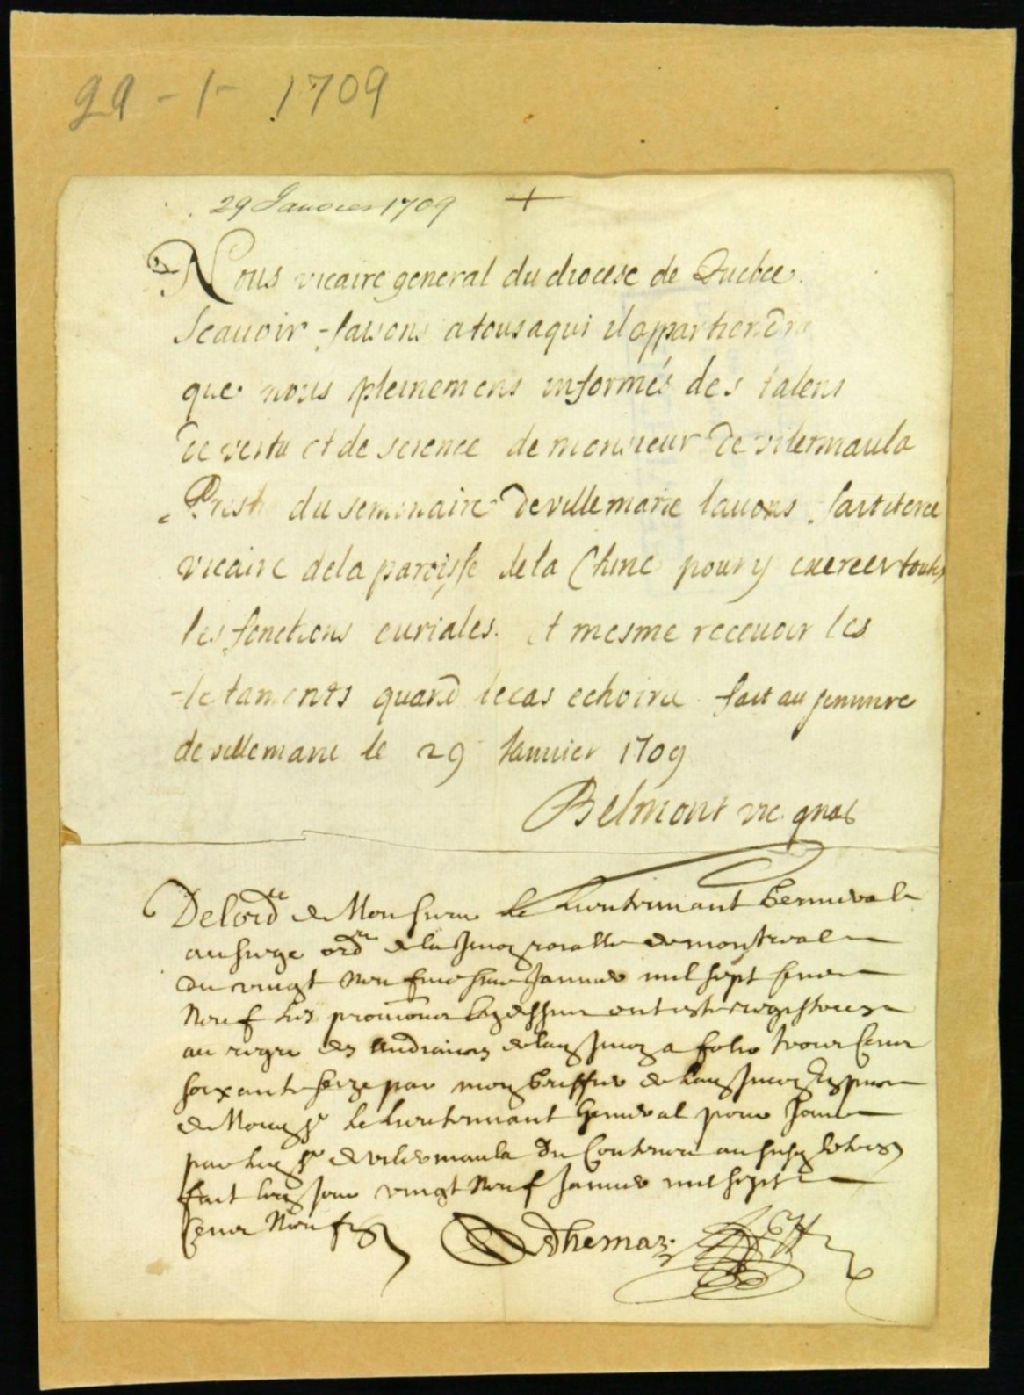 29-1-1709
29 Janvier 1709
Nous vicaire general du diocese de Quebec
Scauoir faisons a tous a qui il appartiendra
que nous pleinemens informés des talens
de vertu et de science de monsieur de vilermaula
Prest du seminaire de ville marie lauons fait et erce
vicaire de la paroisse de la Chine pour y exercer toutes
les fonctions curiales et mesme receuoir les
testaments quand le cas echoira fait au seminere
de villemarie le 29 Januier 1709
Belmont vic gnal
De lordre de Monsieur le Lieutennant General
au siege ordre de la Juron royalle de montreal
du vingt neufuiesme Januier mil sept cent
Neuf les prouisions cy dessus ont esté registrees
au regre des Audiances de lad Juron a folio trois cent
soixante seize par moy Greffier de lad Juron
de Mond Sr le Lieutennant General pour
par led Sr de vilermaula du Contenu
fait led jour vingt Neuf Januier mil sept
Cent Neuf
Adhemar